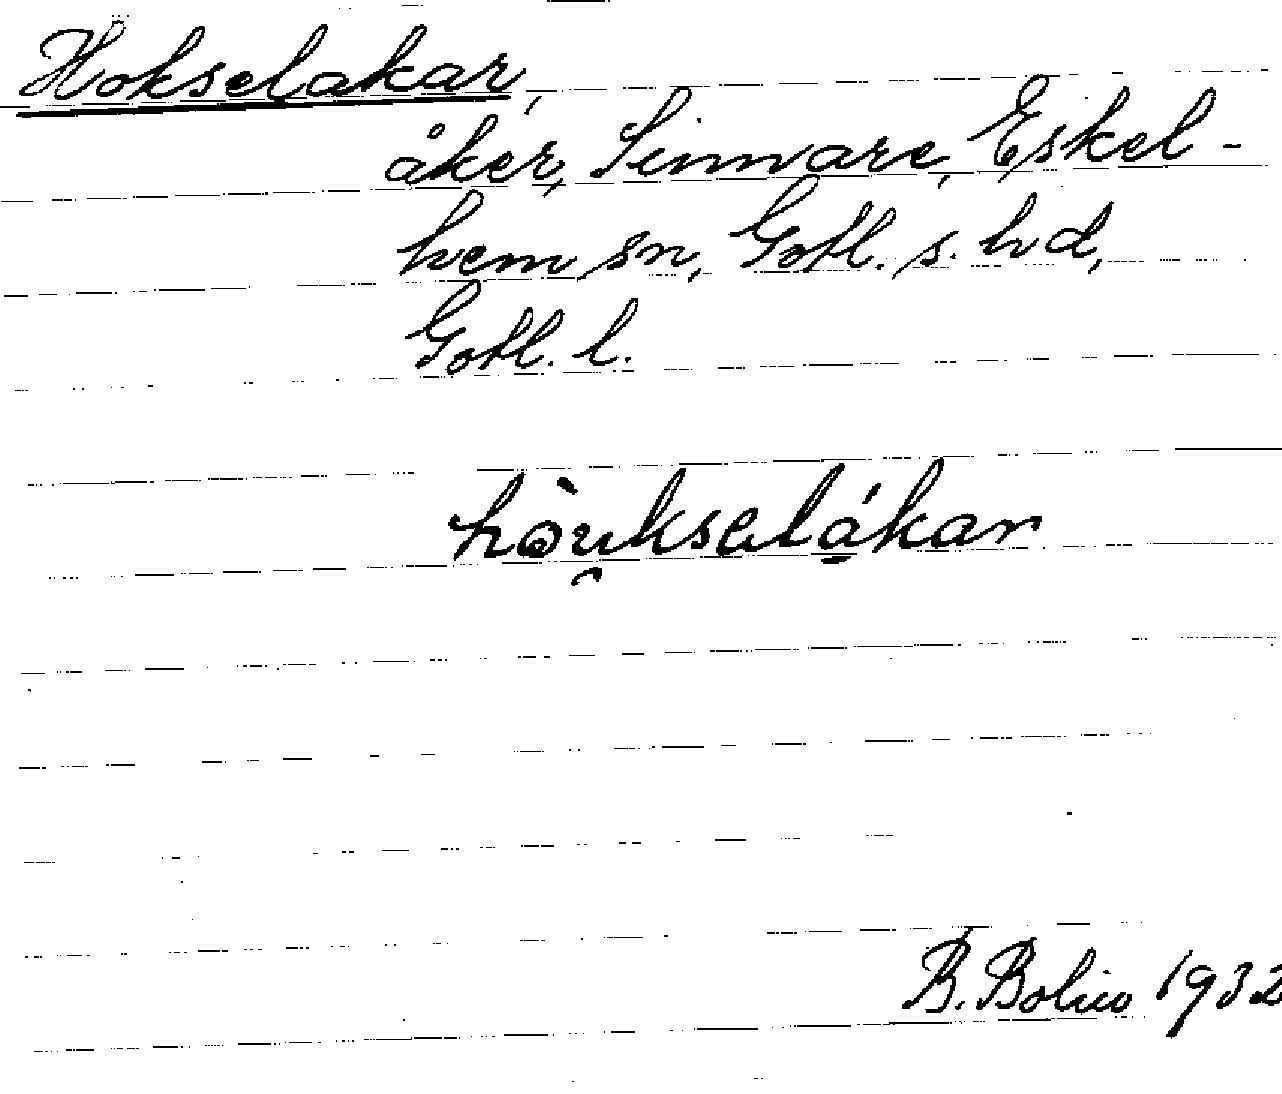 Hokselakar,
åker, Simmare, Eskel-
hem sn, Gotl. s. hd,
Gotl. l.
hòu̯ksalákar
B. Bolin 1932